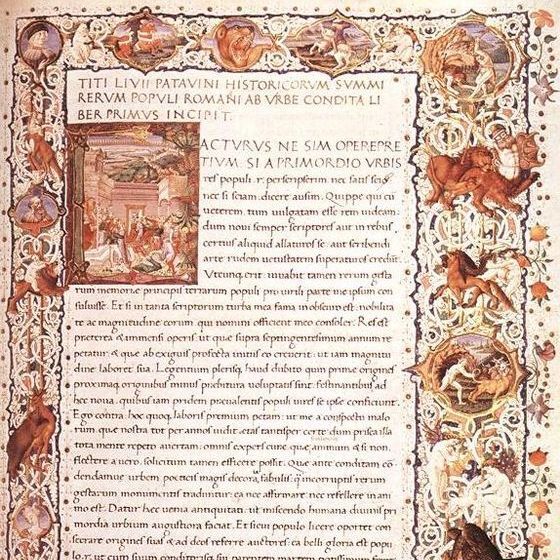 TITI LIVII PATAVINI HISTORICORVM SVMMI
RERVM POPVLI ROMANI AB VRBE CONDITA LI
BER PRIMVS INCIPIT.
FACTVRVS NE SIM OPEREPRE
TIVM SI A PRIMORDIO VRBIS
res populi .r. perscripserim nec satis scio
nec si sciam: dicere ausim. Quippe qui cū
ueterem tum uulgatam esse rem uideam:
dum noui semper scriptores aut in rebus
certius aliquid allaturos se. aut scribendi
arte rudem uetustatem superaturos credūt.
Vtcunq erit: iuuabit tamen rerum gesta
rum memoriae principis terrarum populi pro uirili parte me ipsum con
suluisse. Et si in tanta scriptorum turba mea fama in obscuro est: nobilita
te ac magnitudine eorum qui nomini officient meo consoler. Res est
preterea & immensi operis ut que supra septingentesimum annum re
petatur: & que ab exiguis profecta initiis eo creuerit: ut iam magnitu
dine laboret sua. Legentium plerisq haud dubito quin prime origines
proximaq originibus minus praebitura uoluptatis sint: festinantibus ad
hec noua. quibus iam pridem praeualentis populi uires se ipse conficiunt.
Ego contra hoc quoq laboris premium petam: ut me a conspectu malo
rum que nostra tot per annos uidit etas: tantisper certe dum prisca illa
tota mente repeto auertam. omnis expers cure. que animum & si non
flectere a uero. solicitum tamen efficere possit. Que ante conditam con
dendamue urbem poeticis magis decora fabulis: q incorruptis rerum
gestarum monumentis traduntur: ea nec affirmare nec refellere in ani
mo est. Datur hec uenia antiquitati: ut miscendo humana diuinis pri
mordia urbium augustiora faciat. Et si cui populo licere oportet con
secrare origines suas: & ad deos referre auctores: ea belli gloria est popu
lo .r. ut cum suum conditorisq sui parentem martem potissimum ferat